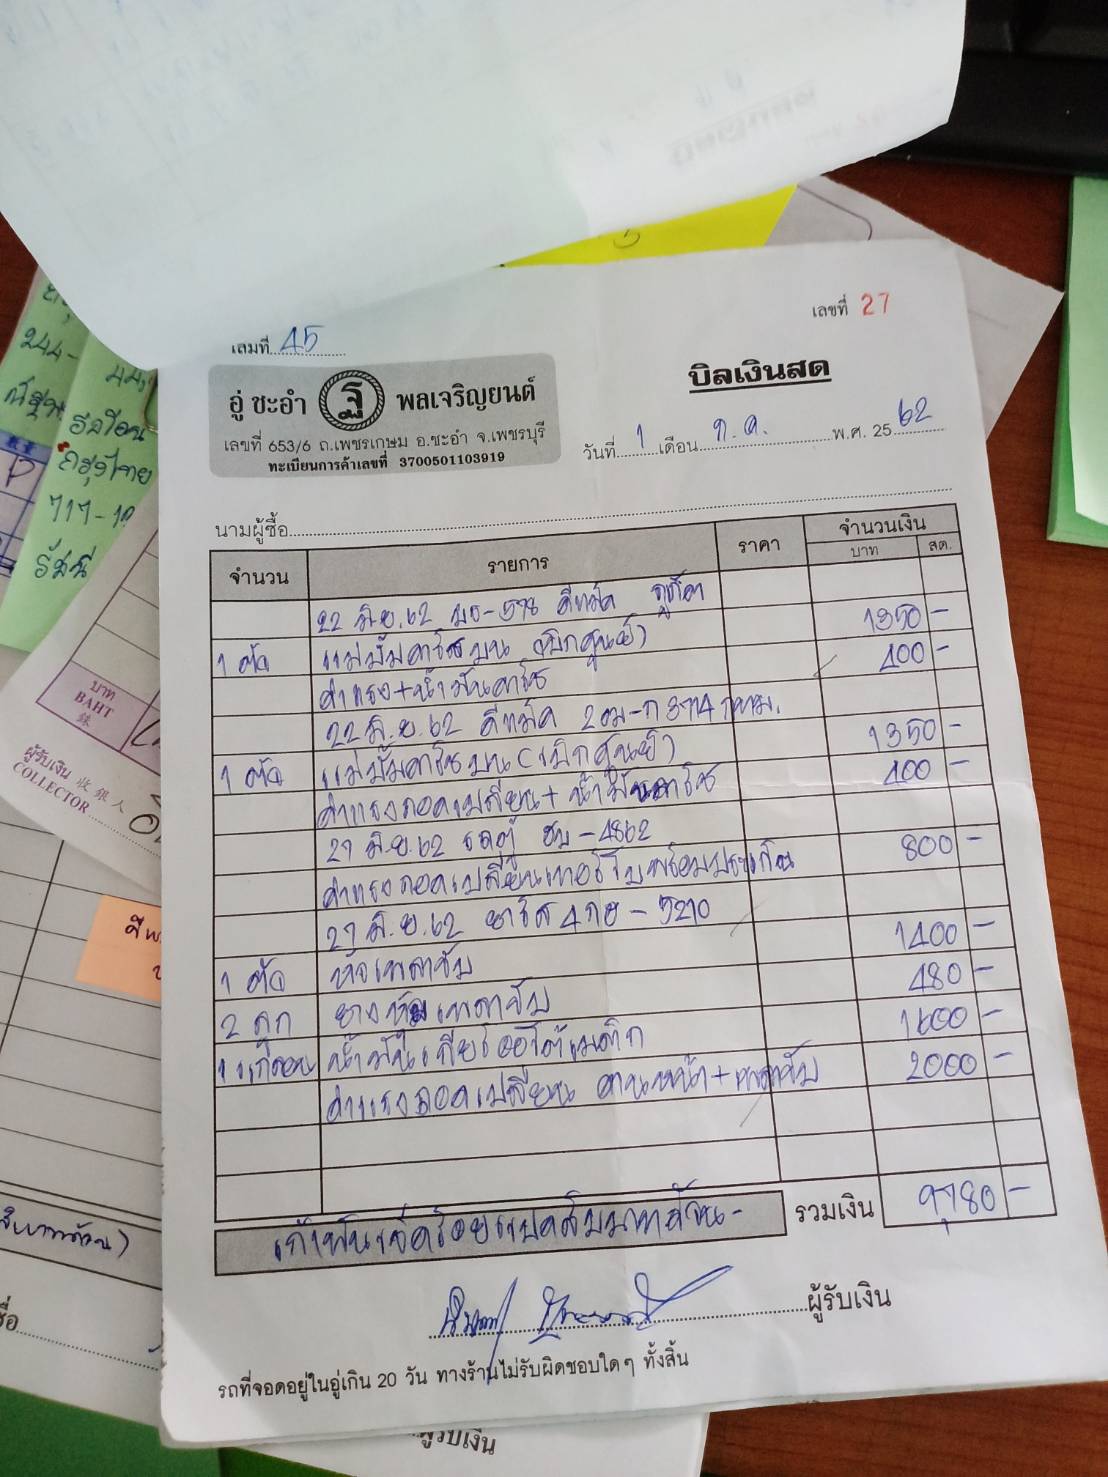 เล่มที่ 45
เลขที่ 27
อู่ ชะอำ ฐ พลเจริญยนต์
เลขที่ 653/6 ถ.เพชรเกษม อ.ชะอำ จ.เพชรบุรี
ทะเบียนการค้าเลขที่ 3700501103919
บิลเงินสด
วันที่ 1 เดือน ก.ค. พ.ศ. 2562
นามผู้ซื้อ
จำนวน รายการ ราคา จำนวนเงิน
บาท สต.
22 มิ.ย. 62 ดีแม็ค
1 ตัว แม่ปั๊มคลัชบน (เบิกศูนย์) 1350 -
ค่าแรง+น้ำมันคลัช 400 -
22 มิ.ย. 62 ดีแม็ค กทม.
1 ตัว แม่ปั๊มคลัชบน (เบิกศูนย์) 1350 -
ค่าแรงถอดเปลี่ยน + น้ำมันคลัช 400 -
27 มิ.ย. 62 รถตู้ ฮบ - 4862
ค่าแรงถอดเปลี่ยนเทอร์โบพร้อมปะเก็น 800 -
27 มิ.ย. 62 ยาริส 4กฮ - 5210
1 ตัว หัวเพลาขับ 1400 -
2 ลูก ยางหุ้มเพลาขับ 480 -
1 แกลลอน น้ำมันเกียร์ออโต้เมติก 1600 -
ค่าแรงถอดเปลี่ยน คานหน้า + เพลาขับ 2000 -
เก้าพันเจ็ดร้อยแปดสิบบาทถ้วน - รวมเงิน 9,780 -
ผู้รับเงิน
รถที่จอดอยู่ในอู่เกิน 20 วัน ทางร้านไม่รับผิดชอบใดๆ ทั้งสิ้น
ผู้รับเงิน
244-
717-
กรุงไทย
รัสมี
บาท
BAHT
銖
ผู้รับเงิน 收銀人
COLLECTOR